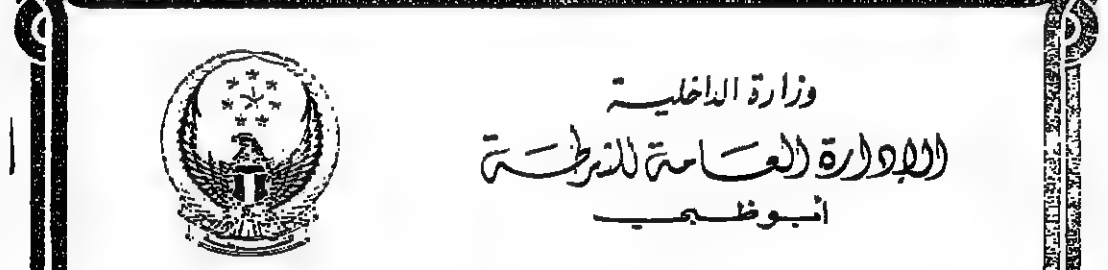 وزارة الداخلية
الإدارة العامة للشرطة
أبوظبي